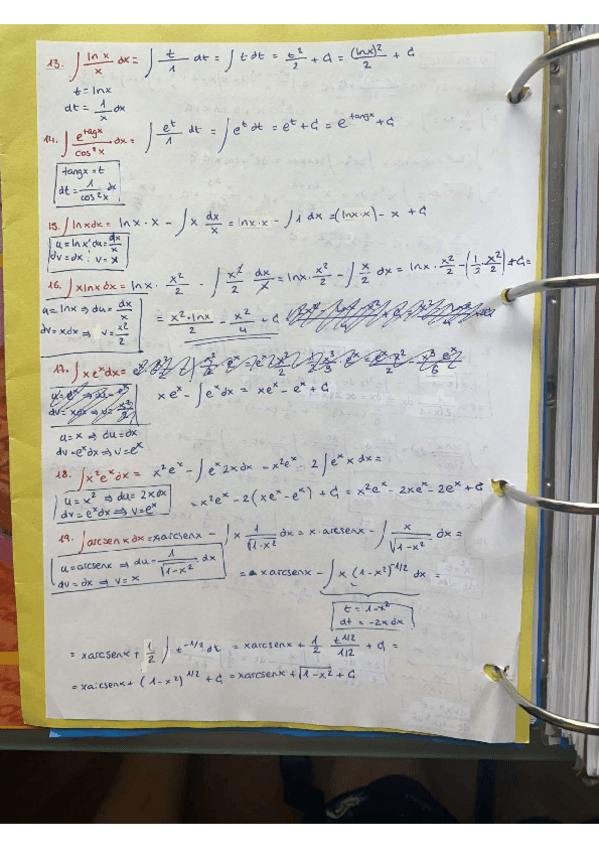 13. ∫ lnx/x dx = ∫ t/1 dt = ∫ t dt = t²/2 + C = (lnx)²/2 + C
t = lnx
dt = 1/x dx
14. ∫ e^tagx/cos²x dx = ∫ e^t/1 dt = ∫ e^t dt = e^t + C = e^tangx + C
tangx = t
dt = 1/cos²x dx
15. ∫ lnxdx = lnx · x − ∫ x dx/x = lnx·x − ∫ 1 dx = (lnx·x) − x + C
u = lnx; du = dx/x
dv = dx; v = x
16. ∫ xlnxdx = lnx · x²/2 − ∫ x²/2 · dx/x = lnx · x²/2 − ∫ x/2 dx = lnx · x²/2 − (1/2 · x²/2) + C =
u = lnx ⇒ du = dx/x
dv = xdx ⇒ v = x²/2
= x²·lnx/2 − x²/4 + C
17. ∫ xe^x dx =
xe^x − ∫ e^x dx = xe^x − e^x + C
u = x ⇒ du = dx
dv = e^x dx ⇒ v = e^x
18. ∫ x²e^x dx = x²e^x − ∫ e^x 2x dx = x²e^x − 2 ∫ e^x x dx =
u = x² ⇒ du = 2x dx
dv = e^x dx ⇒ v = e^x
= x²e^x − 2(xe^x − e^x) + C = x²e^x − 2xe^x − 2e^x + C
19. ∫ arcsenx dx = xarcsenx − ∫ x 1/√(1−x²) dx = x·arcsenx − ∫ x/√(1−x²) dx =
u = arcsenx ⇒ du = 1/√(1−x²) dx
dv = dx ⇒ v = x
= xarcsenx − ∫ x (1−x²)^−1/2 dx =
t = 1−x²
dt = −2x dx
= xarcsenx + 1/2 ∫ t^−1/2 dt = xarcsenx + 1/2 t^1/2/1/2 + C =
= xarcsenx + (1−x²)^1/2 + C = xarcsenx + √(1−x²) + C